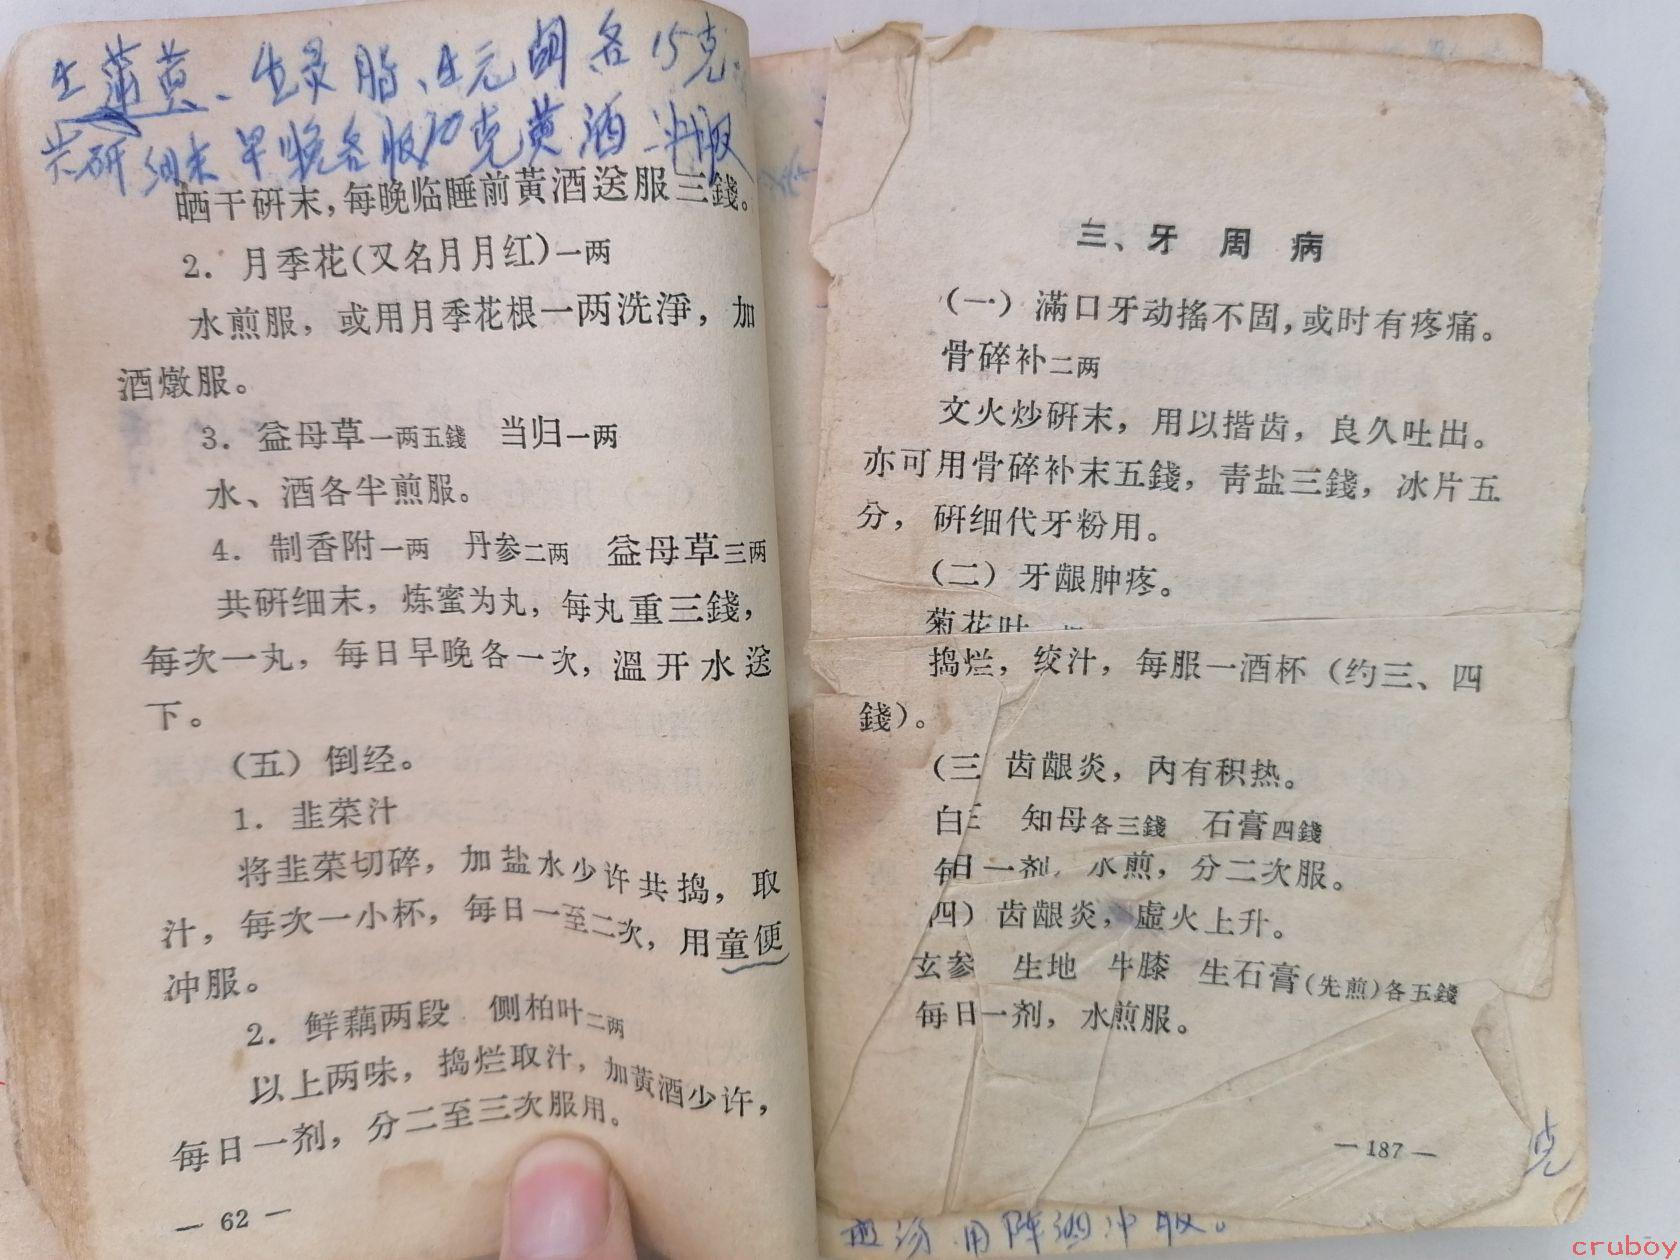 生蒲黄、生灵脂、生元胡各15克.
共研细末早晚各服10克黄酒冲服
晒干研末，每晚临睡前黄酒送服三錢。
2. 月季花(又名月月红)一两
水煎服，或用月季花根一两洗淨，加
酒燉服。
3. 益母草一两五錢 当归一两
水、酒各半煎服。
4. 制香附一两 丹参二两 益母草三两
共研细末，炼蜜为丸，每丸重三錢，
每次一丸，每日早晚各一次，溫开水送
下。
(五) 倒经。
1. 韭菜汁
将韭菜切碎，加盐水少许共捣，取
汁，每次一小杯，每日一至二次，用童便
冲服。
2. 鲜藕两段 侧柏叶二两
以上两味，捣烂取汁，加黄酒少许，
每日一剂，分二至三次服用。
— 62 —
三、牙周病
(一) 滿口牙动搖不固，或时有疼痛。
骨碎补二两
文火炒研末，用以揩齿，良久吐出。
亦可用骨碎补末五錢，靑盐三錢，冰片五
分，研细代牙粉用。
(二) 牙龈肿疼。
菊花叶
捣烂，绞汁，每服一酒杯（约三、四
錢）。
(三 齿龈炎，内有积热。
白 知母各三錢 石膏四錢
每日一剂，水煎，分二次服。
四) 齿龈炎，虛火上升。
玄参 生地 牛膝 生石膏(先煎)各五錢
每日一剂，水煎服。
— 187 —
克
用 酒冲服。
cruboy